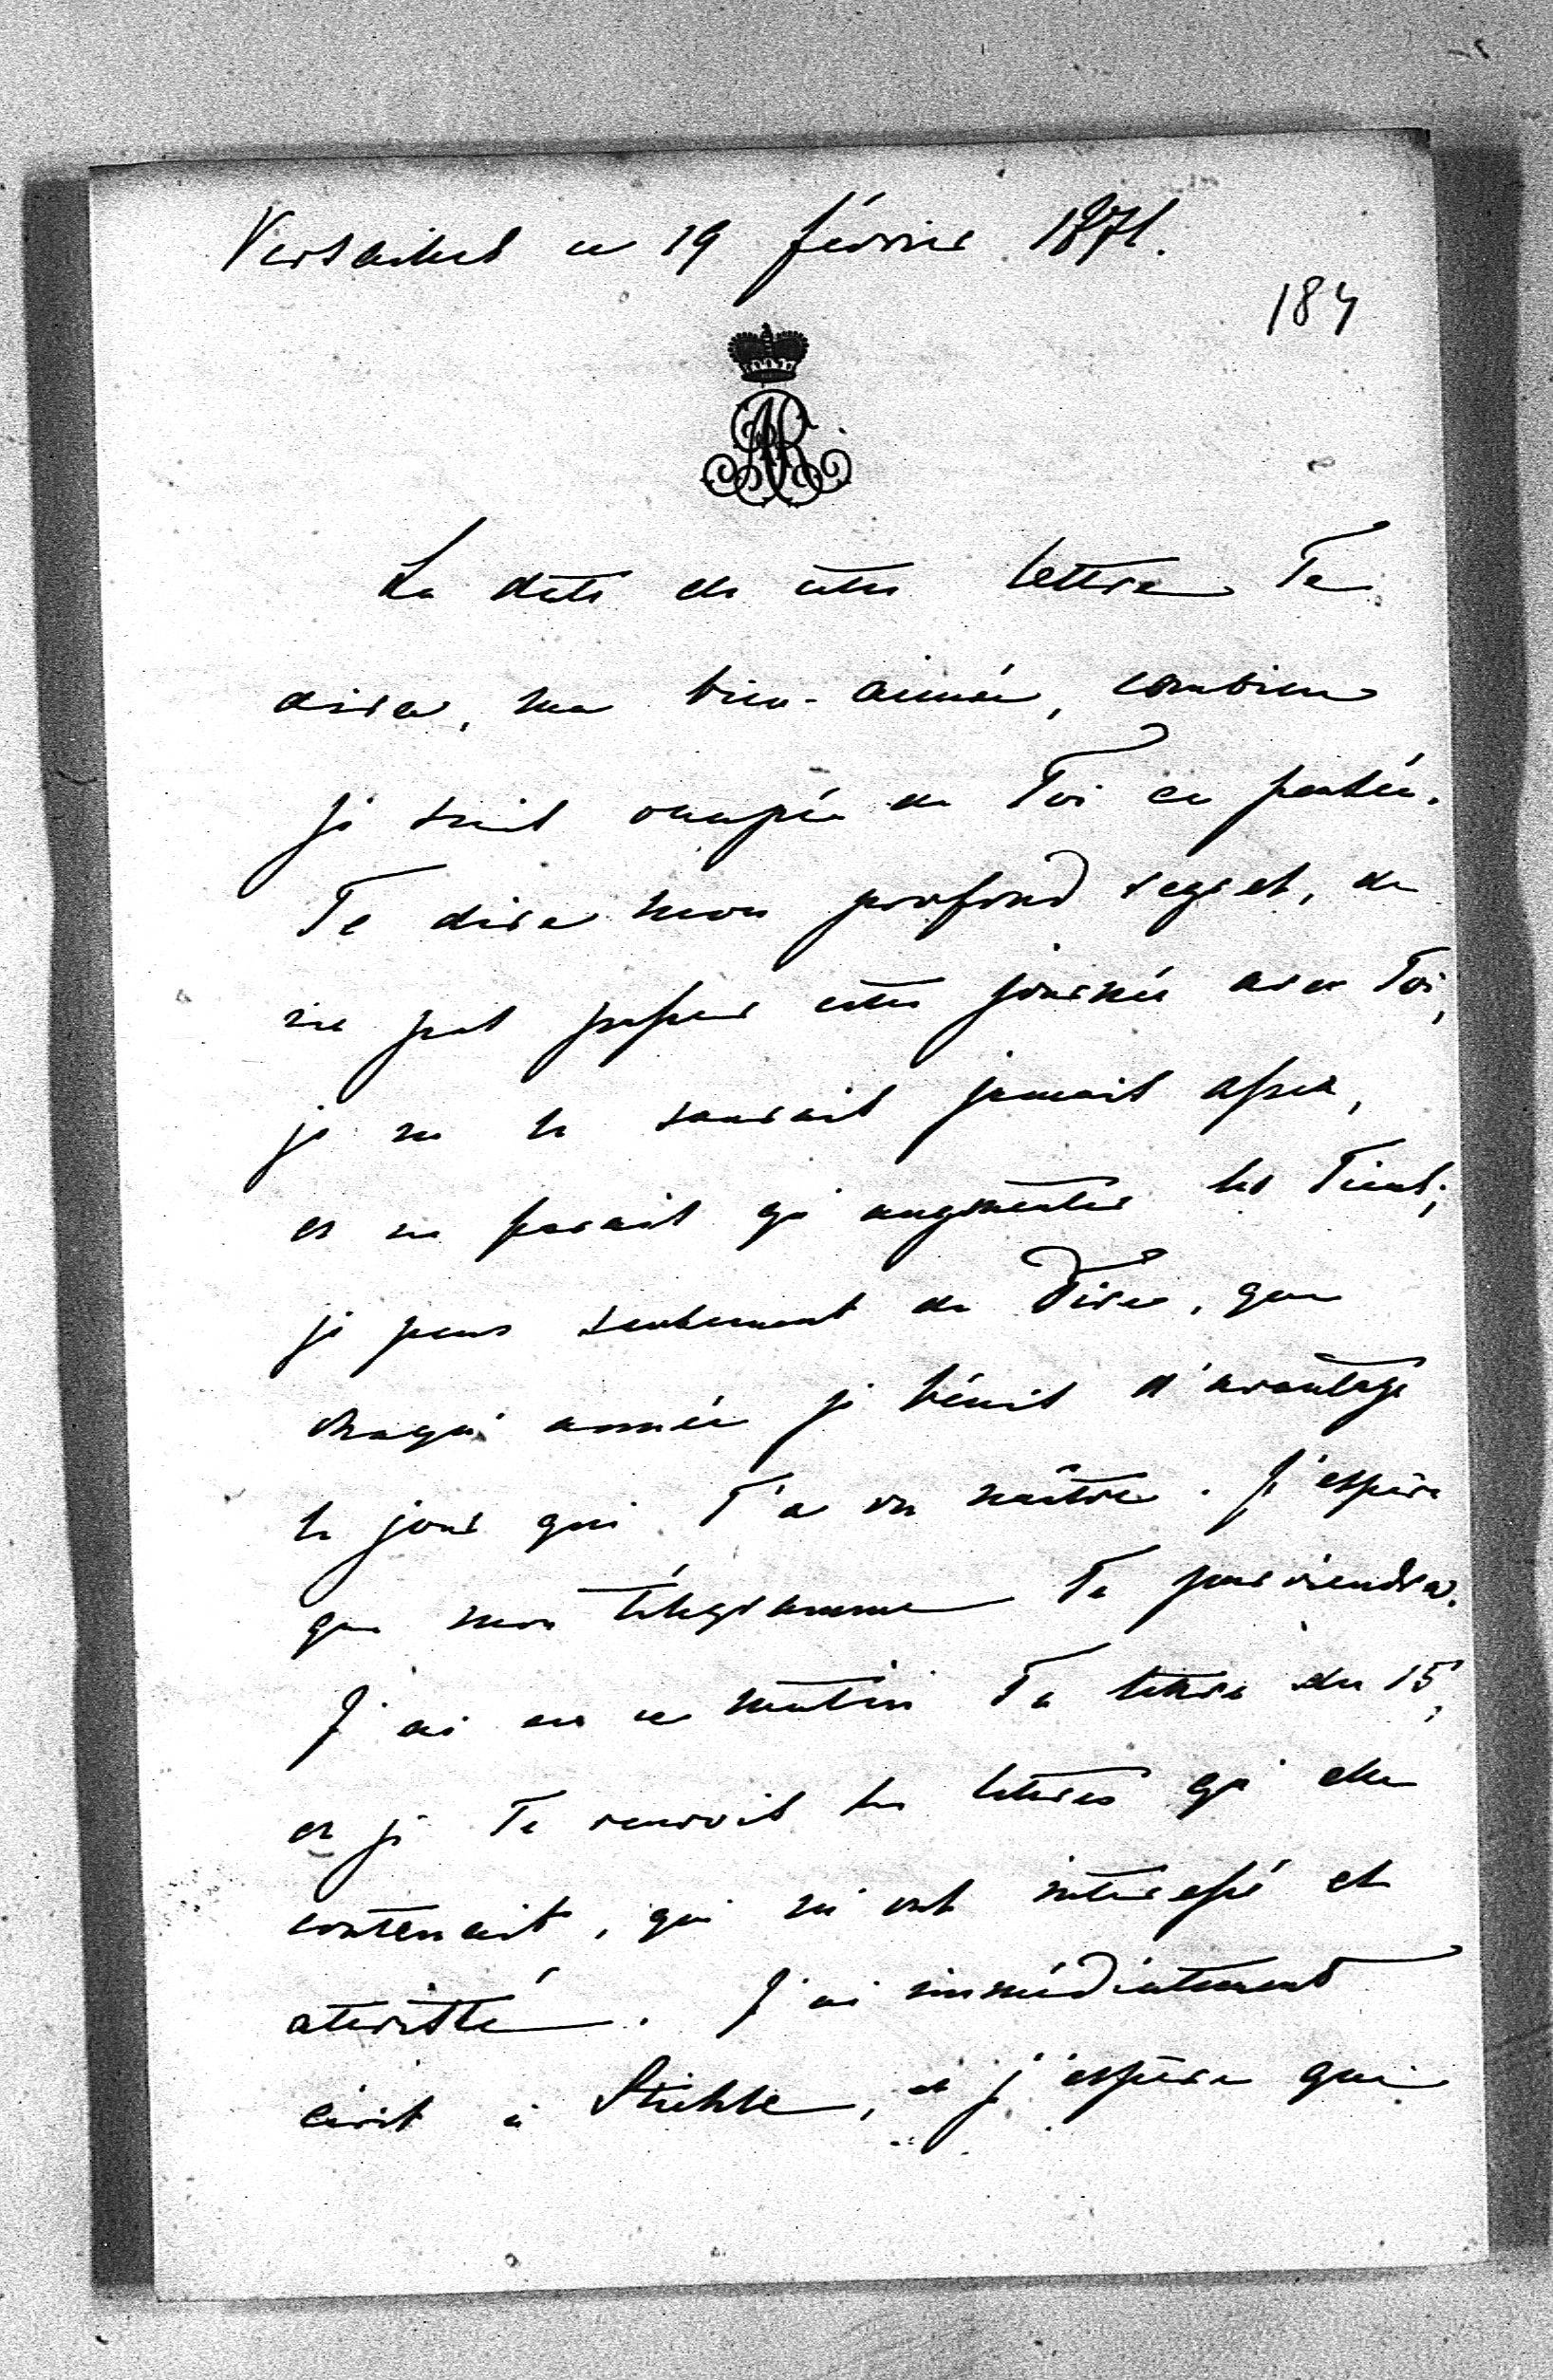 Versailles ce 19 février 1871.
184
La date de cette lettre Te
dira, ma bien-aimée, combien
je suis occupée de Toi en pensée.
Te dire mon profond regret, de
ne pas passer cette journée avec Toi,
je ne le saurais jamais assez,
et ne ferais qu'augmenter les Tiens;
je peux seulement Te dire, que
chaque année je bénis d'avantage
le jour qui T'a vu naître. J'espère
que mon télégramme Te parviendra.
J'ai eu ce matin Ta lettre du 15,
et je Te renvois les lettres qu'elle
contenait, qui m'ont interessé et
atteristé. J'ai immédiatement
écrit à Stiehle, et j'espère que